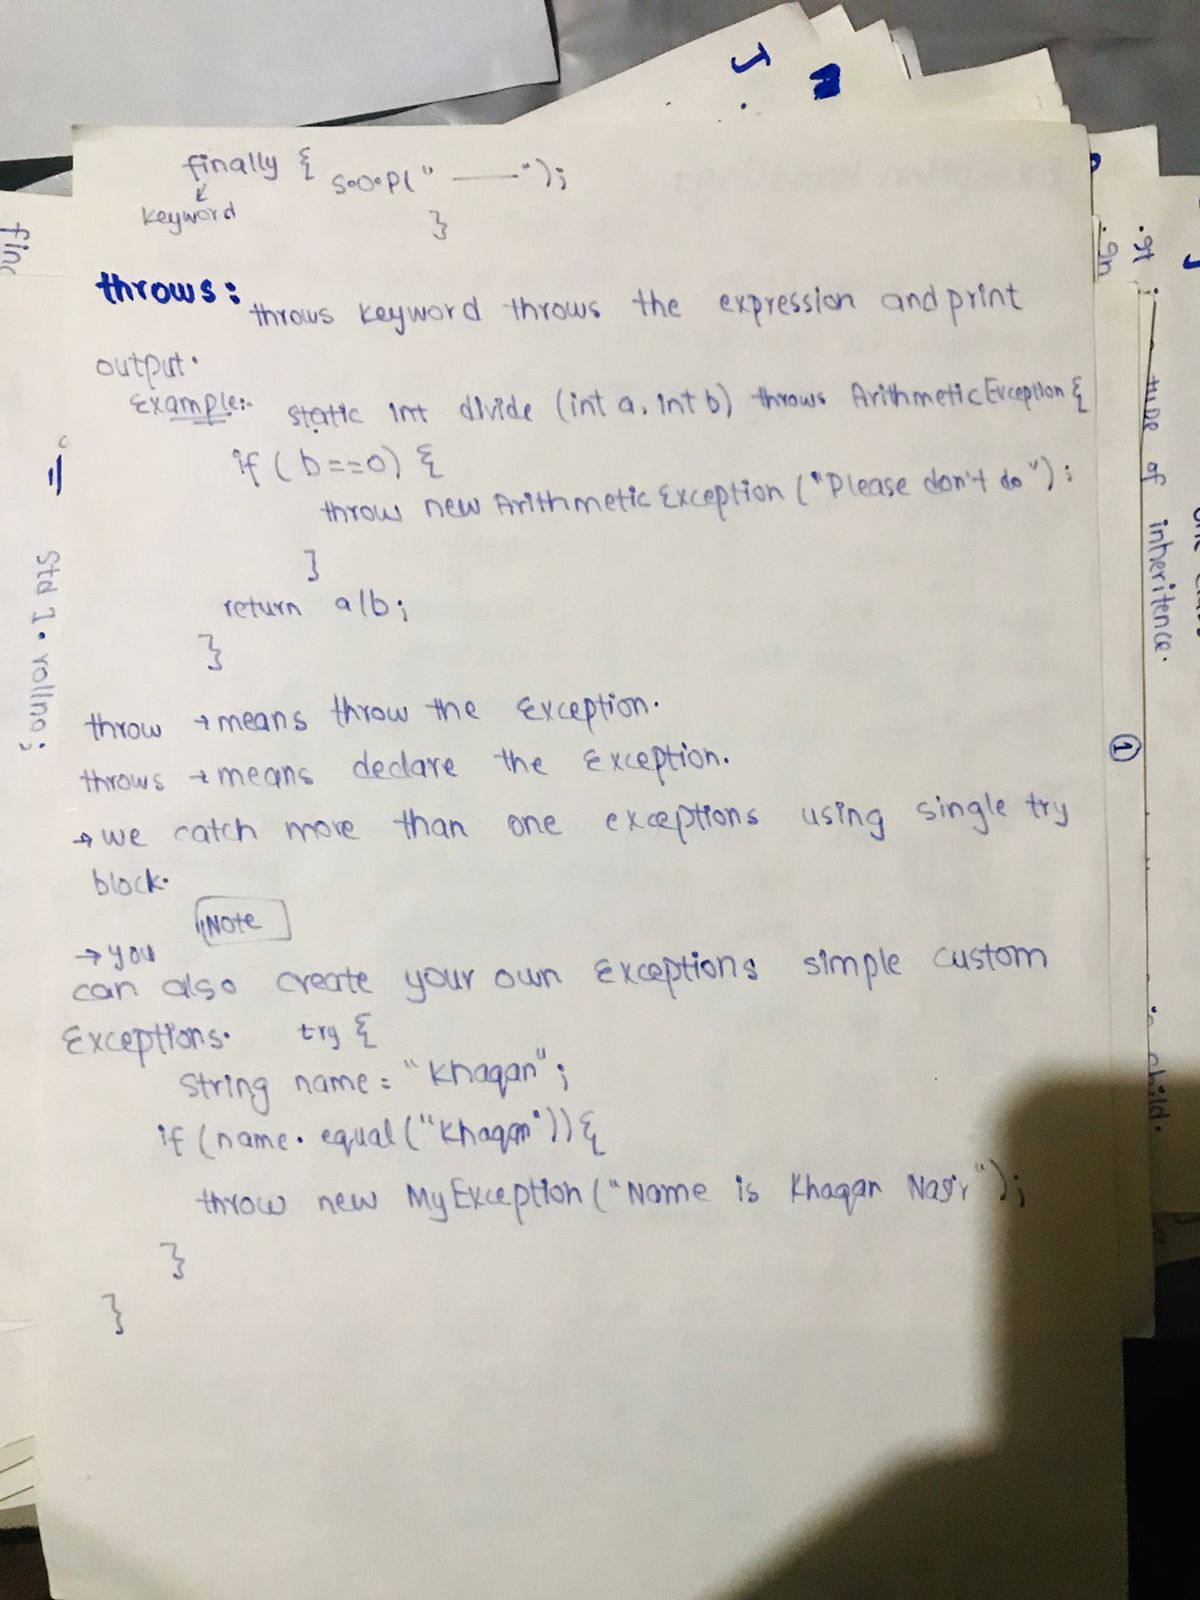 finally { S.O.P(" —— ");
keyword
}
throws:
throws keyword throws the expression and print
output.
Example:- static int divide (int a, int b) throws ArithmeticException {
if (b==0) {
throw new ArithmeticException ("Please don't do");
}
return a/b;
}
throw → means throw the Exception.
throws → means declare the Exception.
→ we catch more than one exceptions using single try
block.
Note
→ you
can also create your own Exceptions simple custom
Exceptions. try {
String name = "Khaqan";
if (name. equal ("Khaqan")) {
throw new MyException ("Name is Khaqan Nasir");
}
}
Std 1. rollno;
type of inheritence.
1
child.